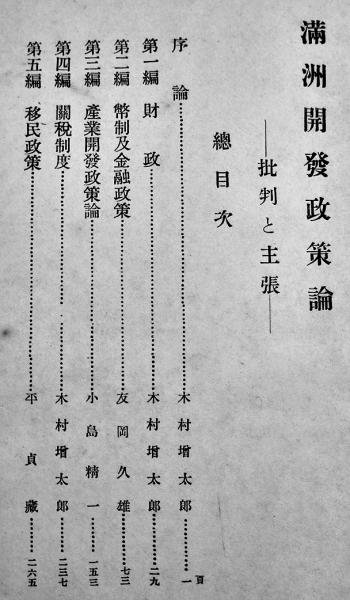 滿洲開發政策論
──批判と主張──
總目次
序論…………………………木村增太郞…………一頁
第一編 財政…………………………木村增太郞……二九
第二編 幣制及金融政策…………………………友岡久雄……七三
第三編 產業開發政策論…………………………小島精一……一五三
第四編 關稅制度…………………………木村增太郞……二三七
第五編 移民政策…………………………平貞藏……二六五